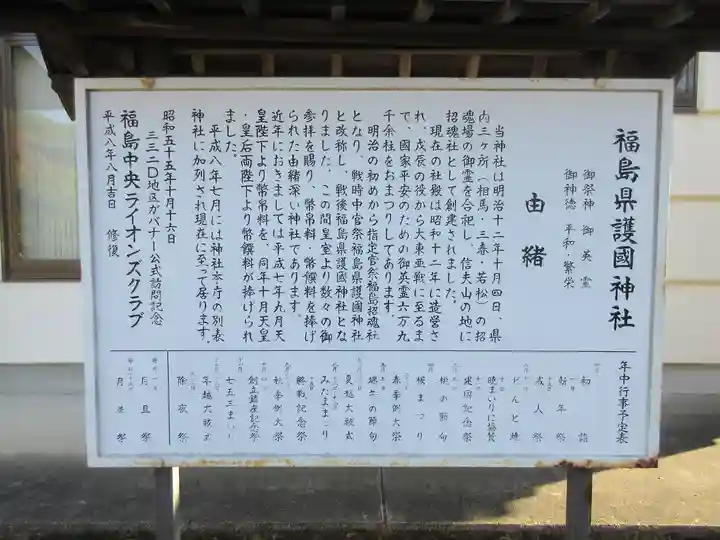 福島県護國神社
御祭神 御英霊
御神徳 平和・繁栄
由緒
当神社は明治十二年十月四日、県
内三ヶ所(相馬・三春・若松)の招
魂場の御霊を合祀し、信夫山の地に
招魂社として創建されました。
現在の社殿は昭和十二年に造営さ
れ、戊辰の役から大東亜戦に至るま
で、國家平安のための御英霊六万九
千余柱をおまつりしてあります。
明治の初めから指定官祭福島招魂社
となり、戦時中官祭福島県護國神社
と改称し、戦後福島県護國神社とな
りました。この間皇室より数々の御
参拝を賜り、幣帛料・幣饌料を捧げ
られた由緒深い神社であります。
近年におきましては平成七年九月天
皇陛下より幣帛料を、同年十月天皇
・皇后両陛下より幣饌料が捧げられ
ました。
平成八年七月には神社本庁の別表
神社に加列され現在に至って居ります。
昭和五十五年十月十六日
三三二D地区ガバナー公式訪問記念
福島中央ライオンズクラブ
平成八年八月吉日 修復
年中行事予定表
初詣
新年祭
成人祭
どんと焼
暁まいりに協賛
建国記念祭
桃の節句
桜まつり
春季例大祭
端午の節句
夏越大祓式
みたままつり
終戦記念祭
秋季例大祭
創立鎮座記念祭
七五三まいり
年越大祓式
除夜祭
月旦祭
月並祭